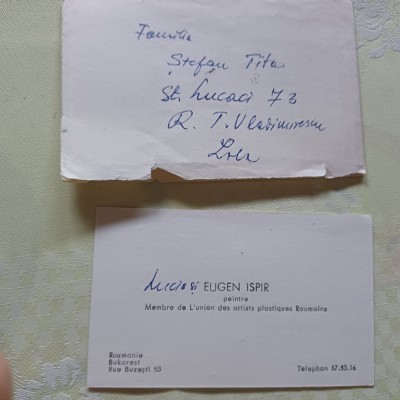 Familia
Ștefan Tita
St. Lucaci 73
R. T. Vladimirescu
Loco
Lucia și EUGEN ISPIR
peintre
Membre de L'union des artists plastiques Roumains
Roumanie
Bukarest
Rue Buzești 53
Telephon 57.53.16